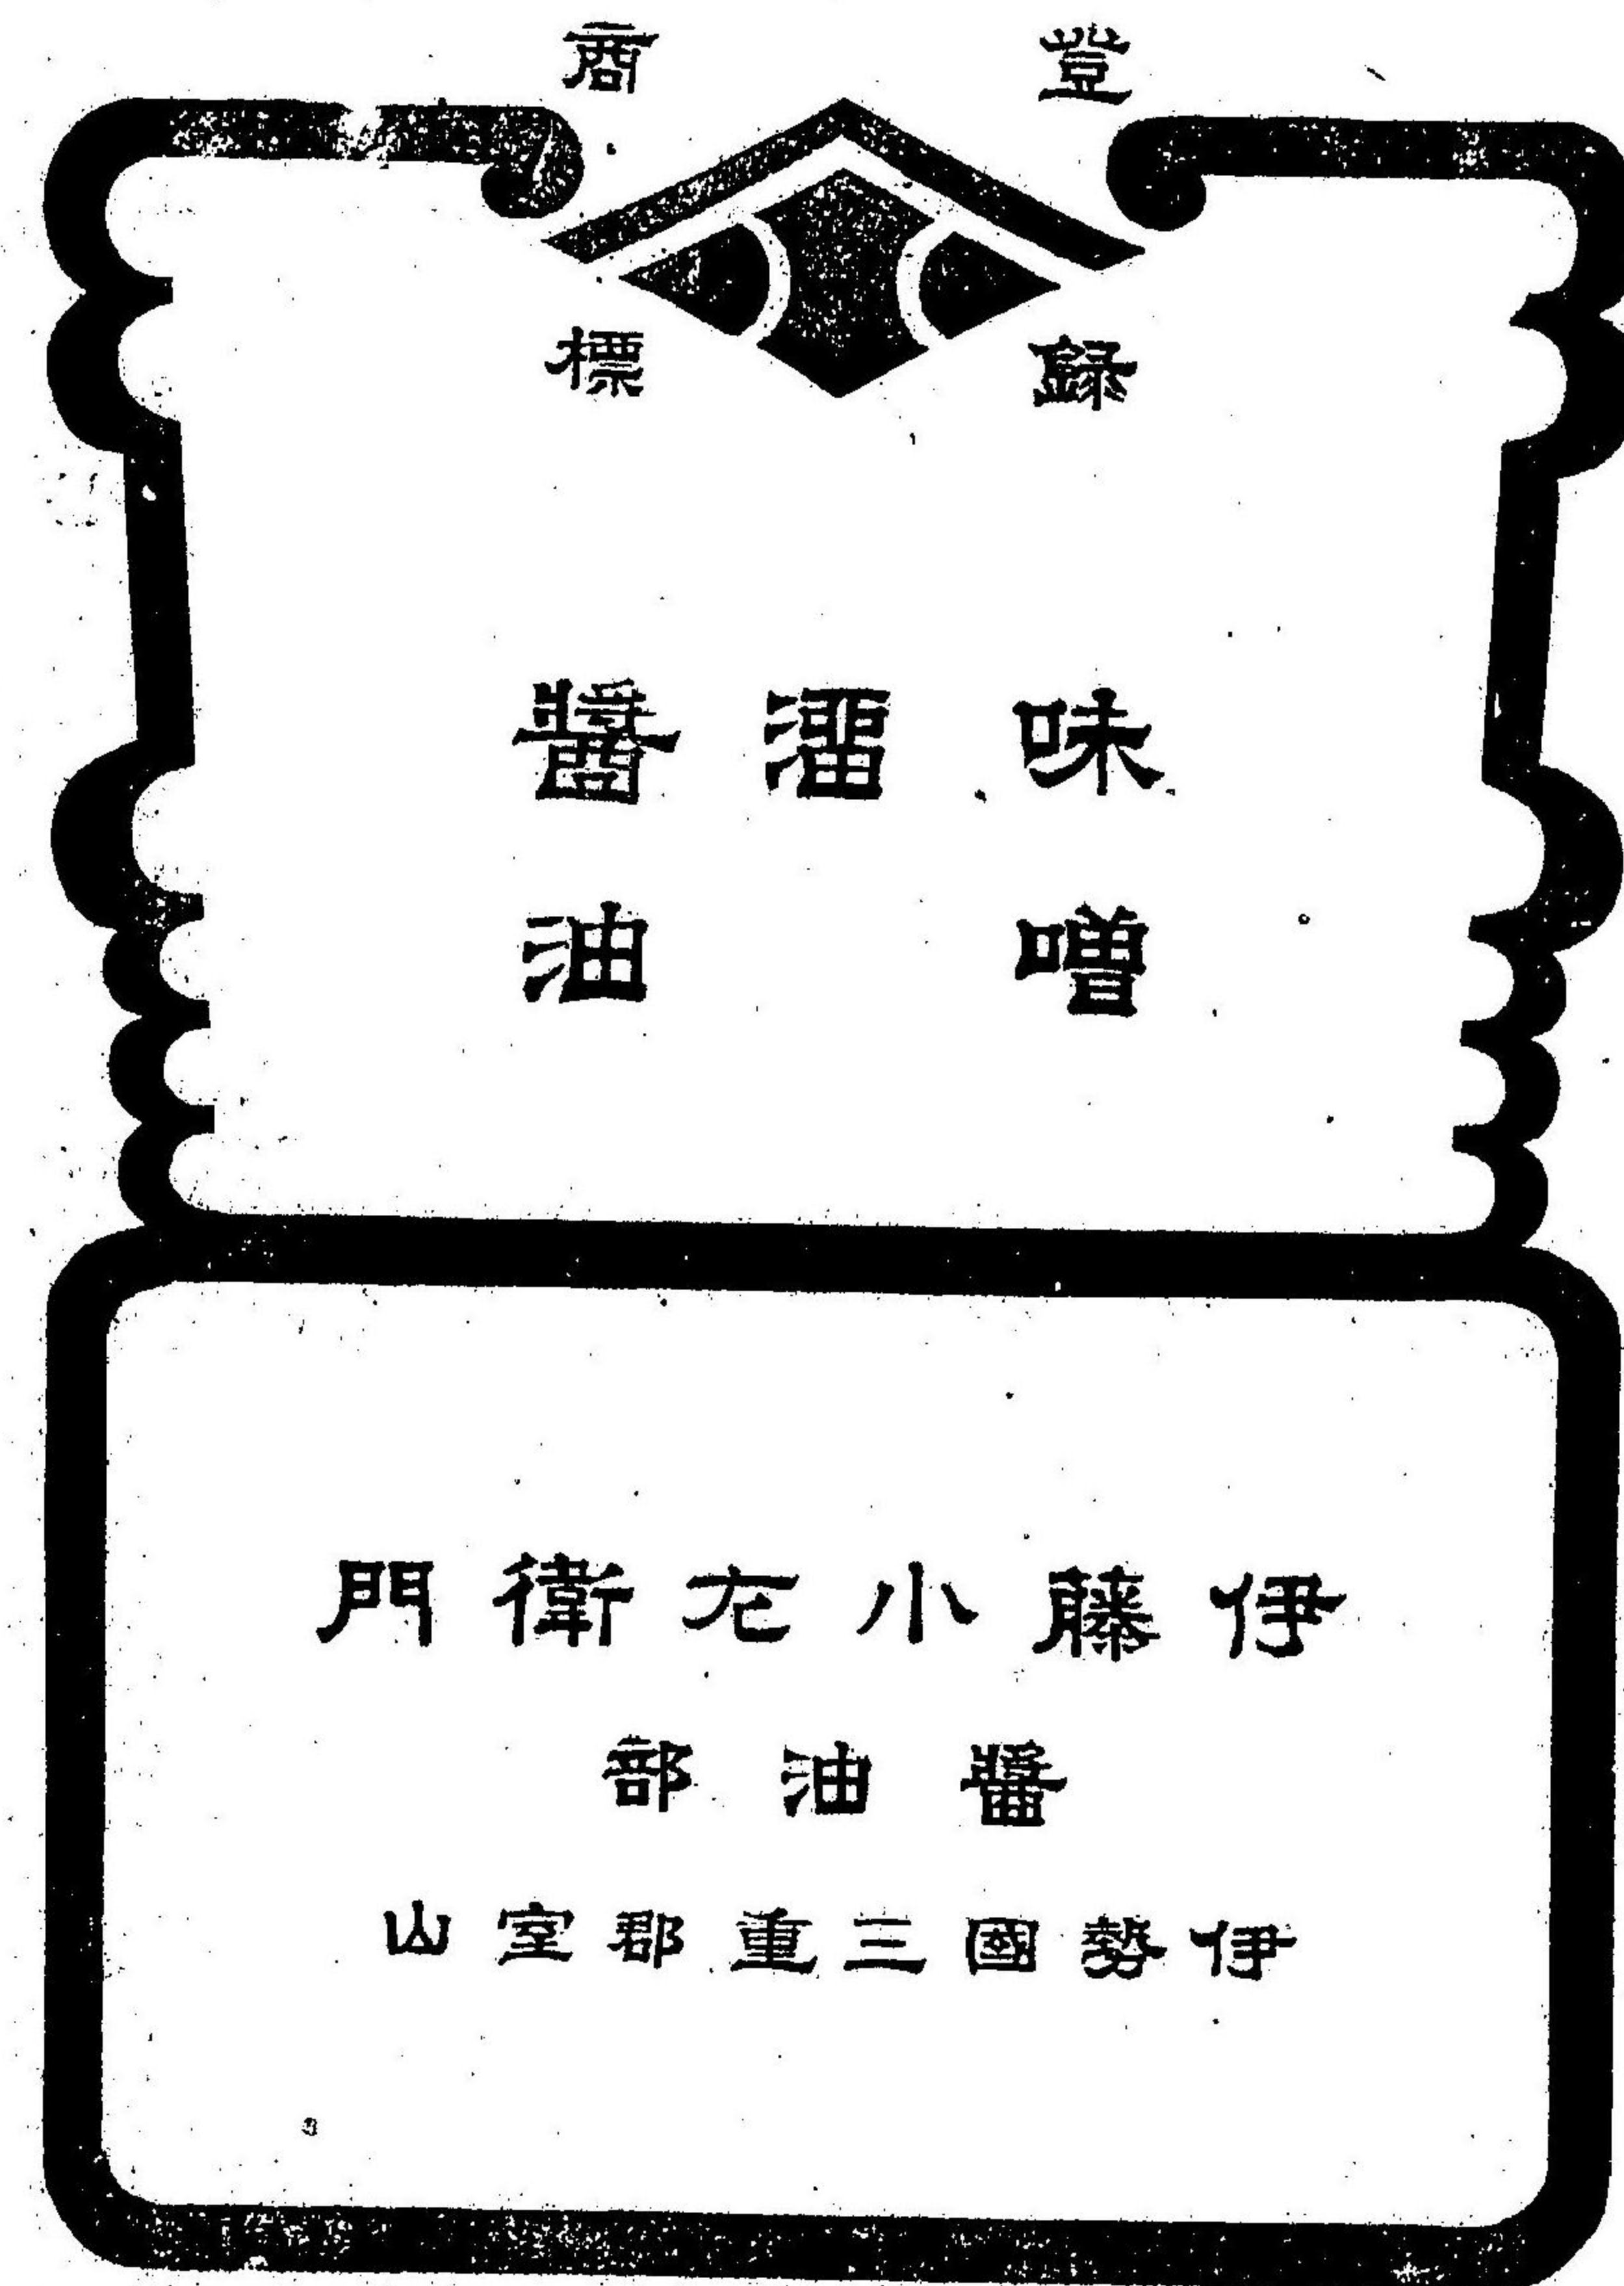 登録
商標
味噌
溜
醤油
伊藤小左衛門
醤油部
伊勢國三重郡室山